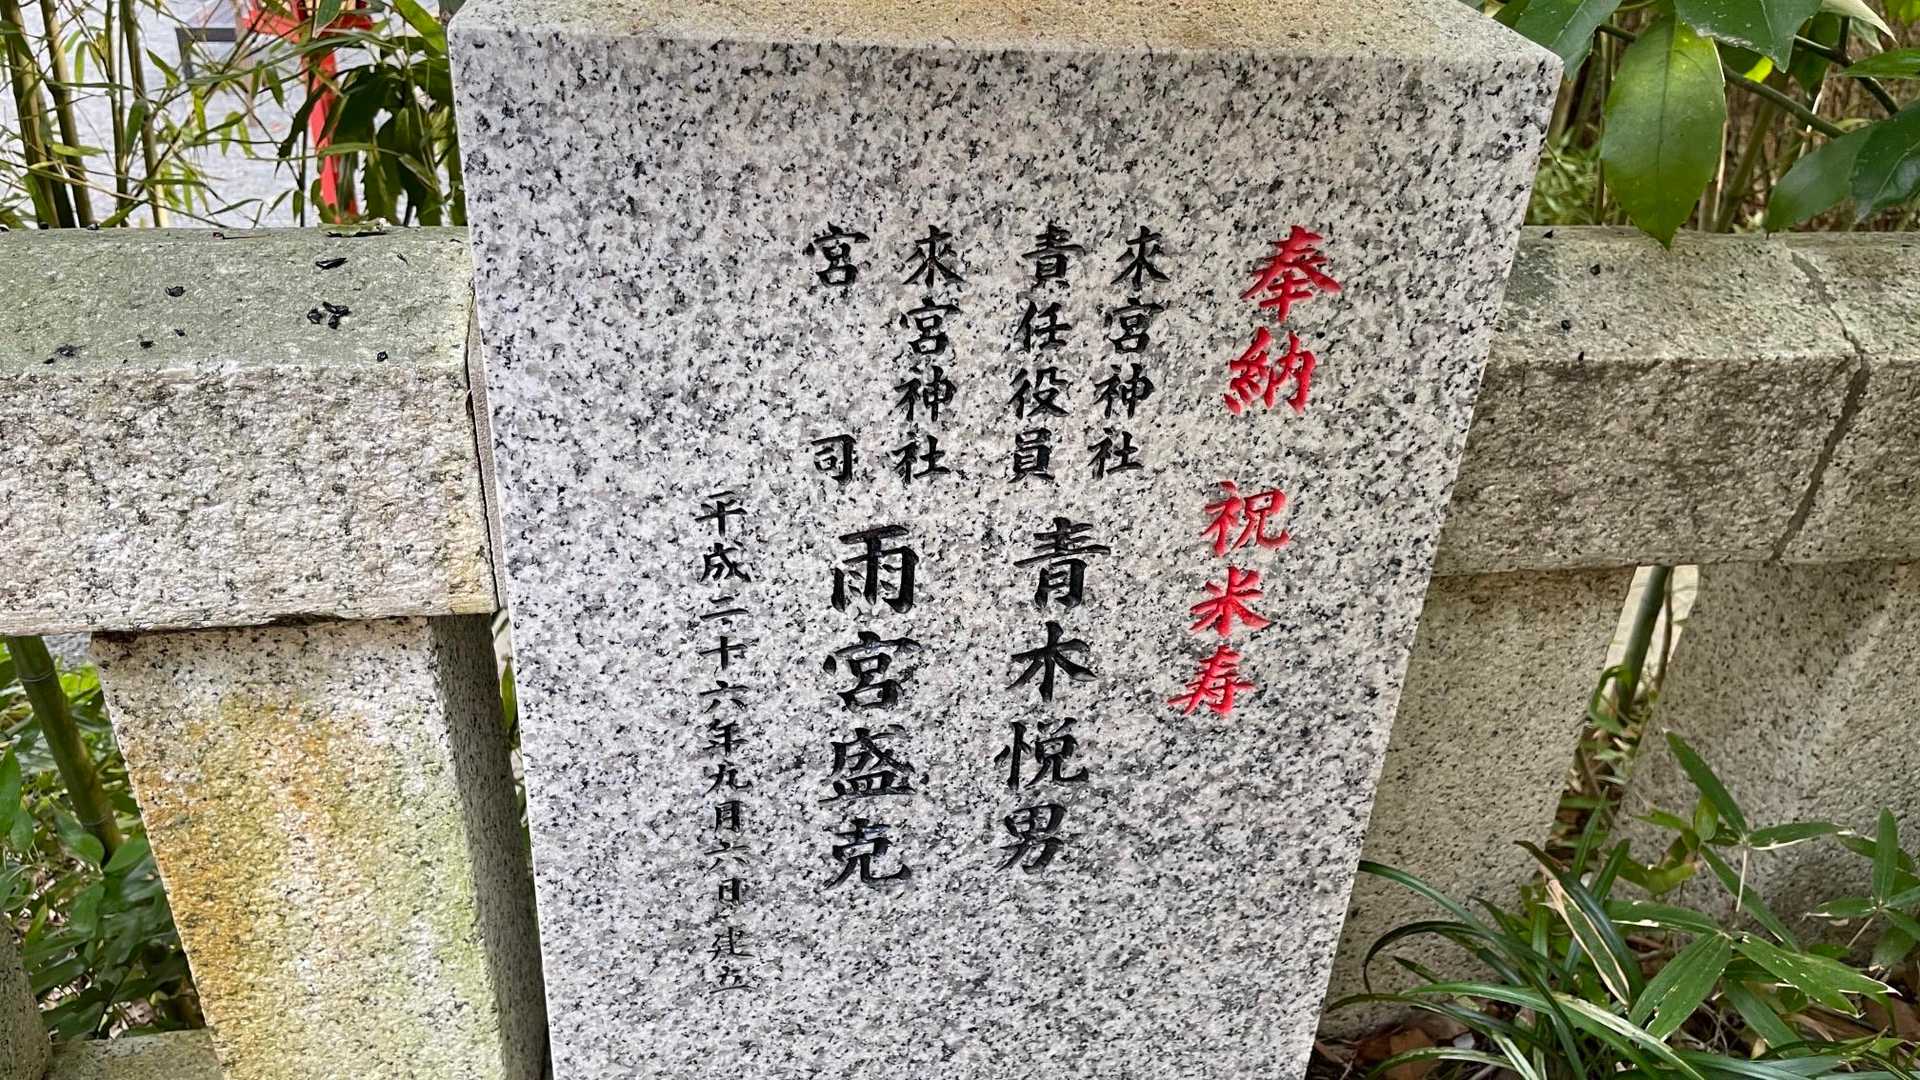 奉納 祝米寿
來宮神社
責任役員 青木悦男
來宮神社
宮司 雨宮盛克
平成二十六年九月六日建立